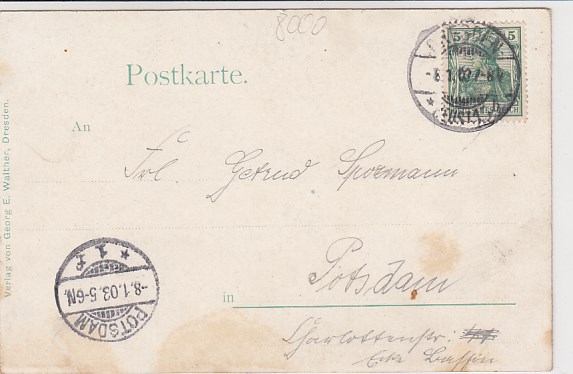 8000
DRESDEN
5 5
Postkarte.
-8.1.03 7-8V.
ALTST.
An
Frl. Gertrud
Verlag von Georg E. Walther, Dresden.
* 1 f *
-8.1.03.5-6N.
POTSDAM
Potsdam
in
Charlottenstr:
Ecke